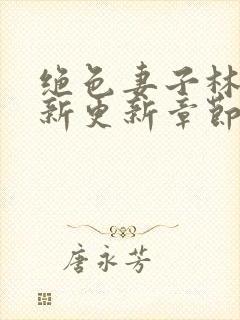 绝色妻子林
新更新章节
唐永芳